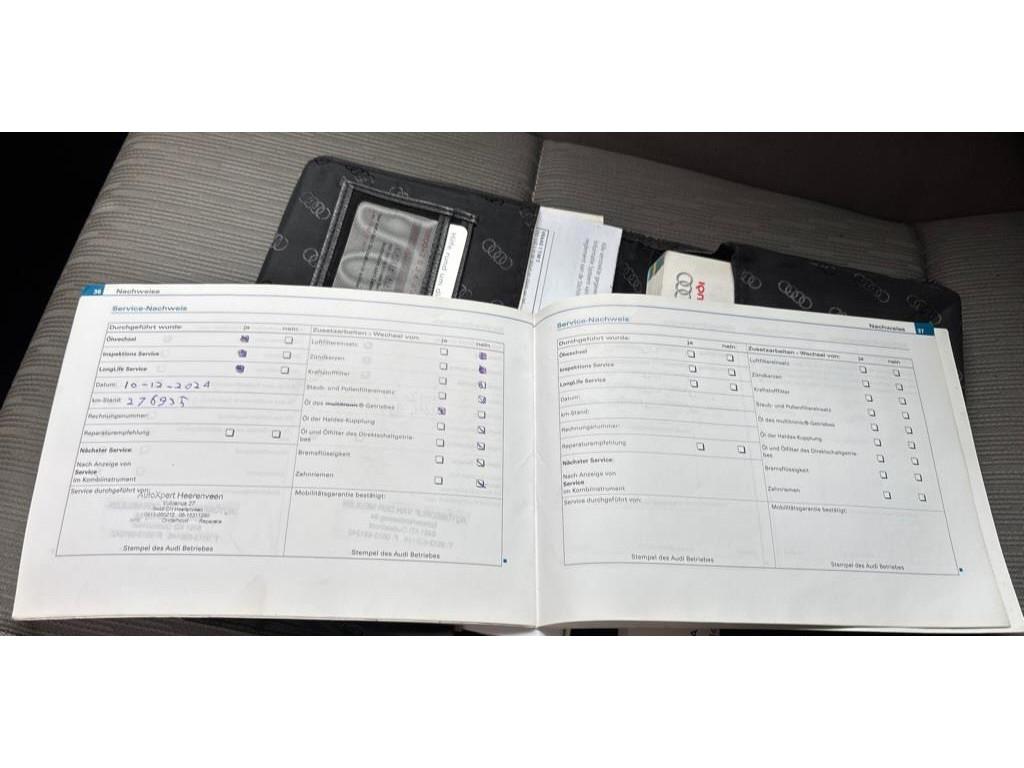 36 Nachweise
Service-Nachweis
Durchgeführt wurde: ja nein
Ölwechsel
Inspektions Service
LongLife Service
Datum: 10-12-2024
km-Stand: 276935
Rechnungsnummer:
Reparaturempfehlung
Nächster Service:
Nach Anzeige von
Service
im Kombiinstrument
Service durchgeführt von:
AutoXpert Heerenveen
Stempel des Audi Betriebes
Zusatzarbeiten - Wechsel von: ja nein
Luftfiltereinsatz
Zündkerzen
Kraftstofffilter
Staub- und Pollenfiltereinsatz
Öl des multitronic®-Getriebes
Öl der Haldex-Kupplung
Öl und Ölfilter des Direktschaltgetrie-
bes
Bremsflüssigkeit
Zahnriemen
Mobilitätsgarantie bestätigt:
Stempel des Audi Betriebes
Nachweise 37
Service-Nachweis
Durchgeführt wurde: ja nein
Ölwechsel
Inspektions Service
LongLife Service
Datum:
km-Stand:
Rechnungsnummer:
Reparaturempfehlung
Nächster Service:
Nach Anzeige von
Service
im Kombiinstrument
Service durchgeführt von:
Stempel des Audi Betriebes
Zusatzarbeiten - Wechsel von: ja nein
Luftfiltereinsatz
Zündkerzen
Kraftstofffilter
Staub- und Pollenfiltereinsatz
Öl des multitronic®-Getriebes
Öl der Haldex-Kupplung
Öl und Ölfilter des Direktschaltgetrie-
bes
Bremsflüssigkeit
Zahnriemen
Mobilitätsgarantie bestätigt:
Stempel des Audi Betriebes